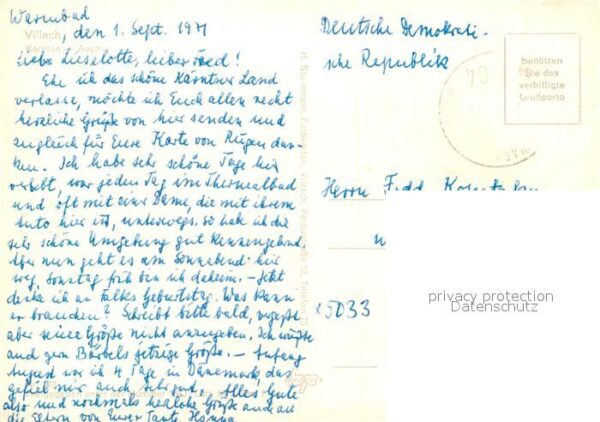 Warmbad
Villach, den 1. Sept. 1971
Kärnten - Austria
Liebe Lieselotte, lieber Fred!
Ehe ich das schöne Kärntner Land
verlasse, möchte ich Euch allen recht
herzliche Grüße von hier senden und
zugleich für Eure Karte von Rügen dan-
ken. Ich habe sehr schöne Tage hier
verlebt, war jeden Tag im Thermalbad
und oft mit einer Dame, die mit ihrem
Auto hier ist, unterwegs, so hab ich die
sehr schöne Umgebung gut kennengelernt.
Aber nun geht es am Sonnabend hier
weg, Sonntag früh bin ich daheim. - Jetzt
denke ich an Falks Geburtstag. Was kann
er brauchen? Schreibt bitte bald, vergeßt
aber seine Größe nicht anzugeben. Ich wüßte
auch gern Bärbels jetzige Größe. - Anfang
August war ich 4 Tage in Dänemark, das
gefiel mir auch sehr gut. Alles Gute
also und nochmals herzliche Grüße auch an
die Eltern von Eurer Tante Hanna
Deutsche Demokrati-
sche Republik
Benützen
Sie das
verbilligte
Grußporto
Herrn
5033
privacy protection
Datenschutz